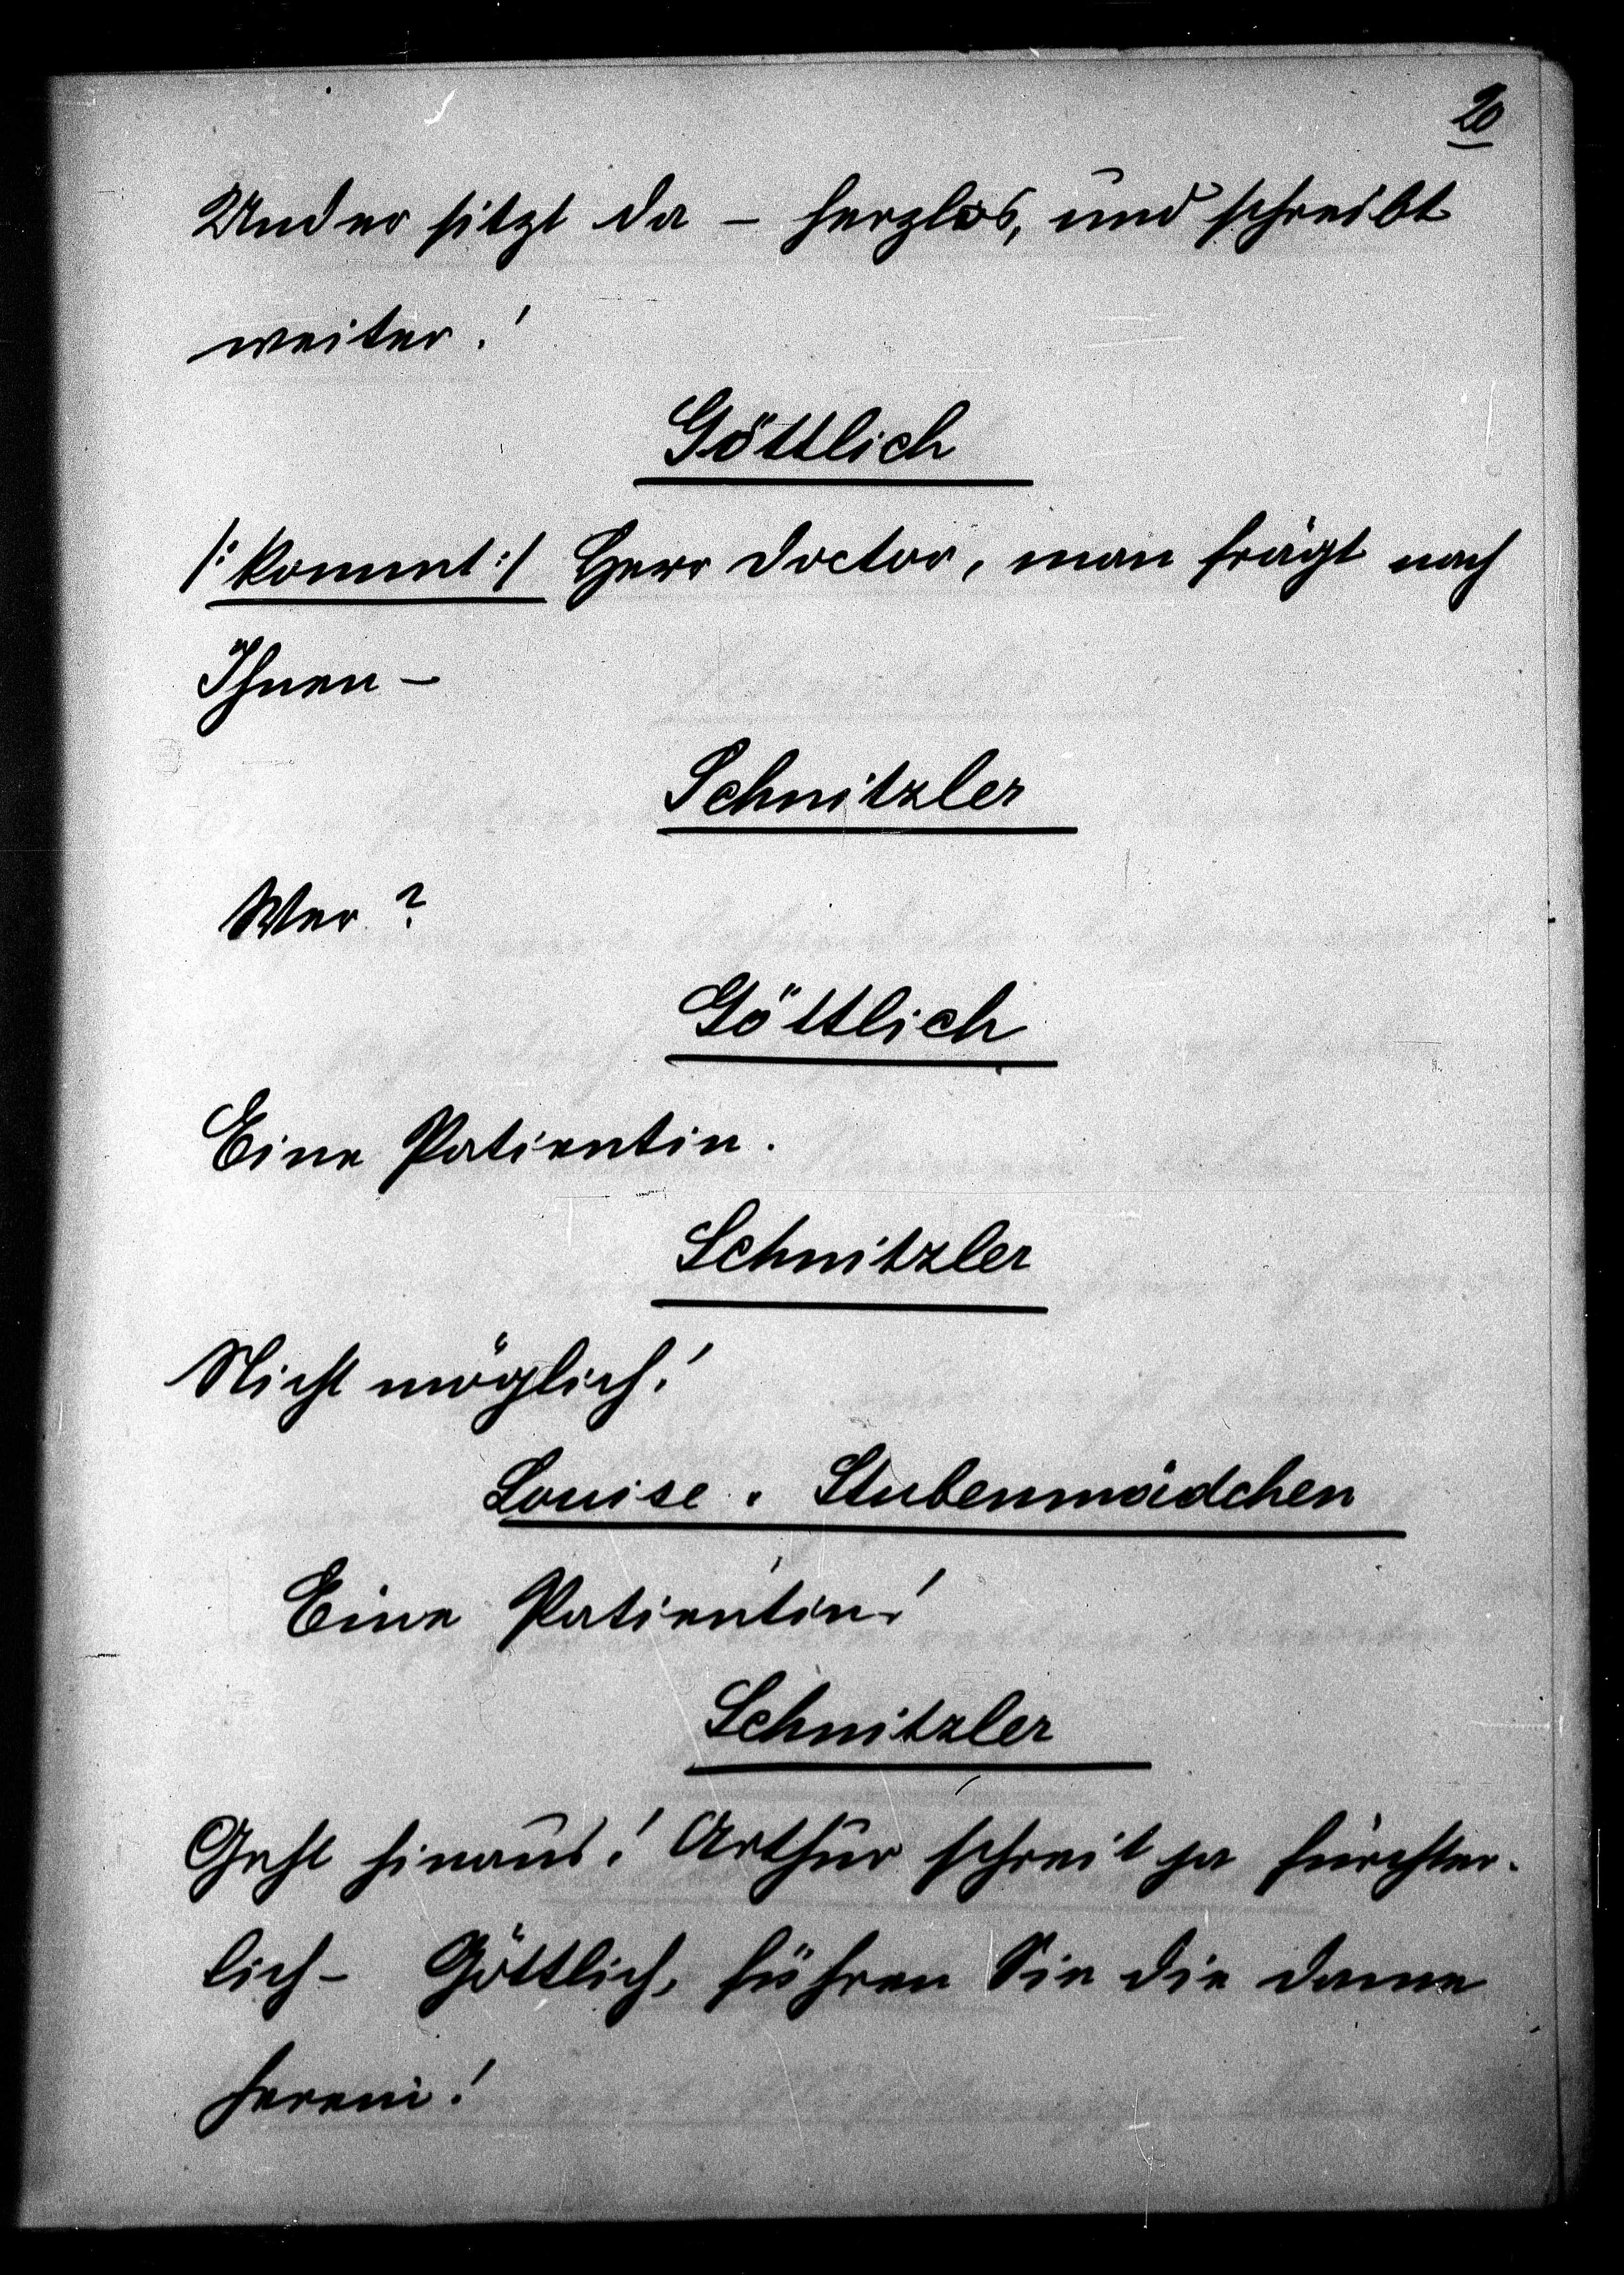 20
Und er sitzt da – herzlos, und schreibt
weiter!
Göttlich
/: kommt :/ Herr Doctor, man frägt nach
Ihnen –
Schnitzler
Wer?
Göttlich
Eine Patientin.
Schnitzler
Nicht möglich!
Louise. Stubenmädchen
Eine Patientin!
Schnitzler
Geht hinaus! Arthur schreit ja fürchter-
lich – Göttlich, führen Sie die Dame
herein!